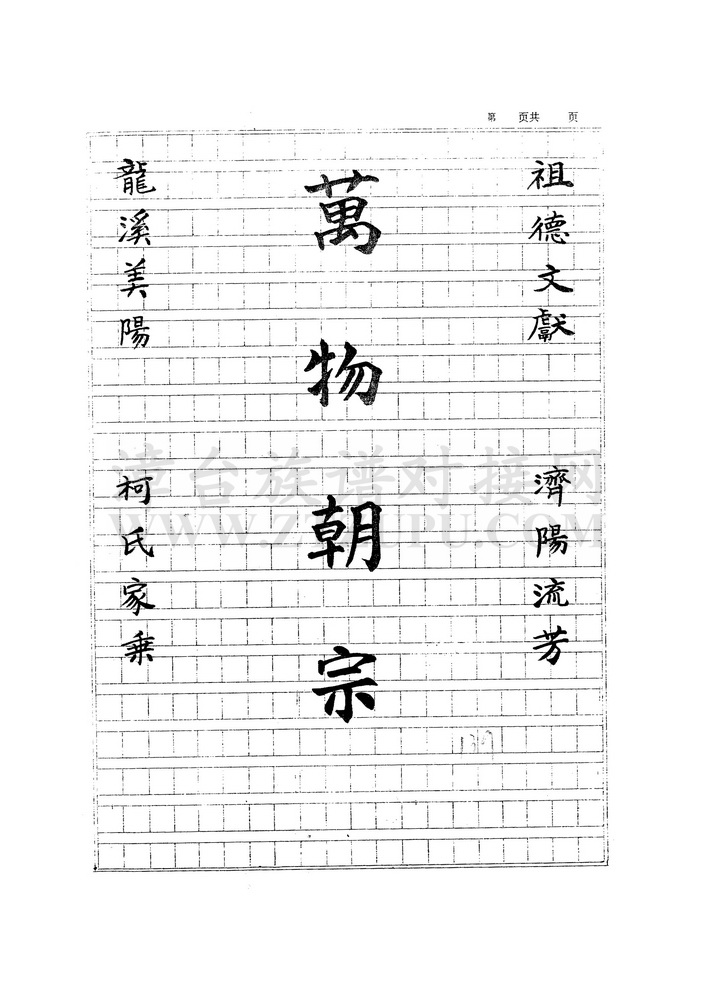 第 页共 页
祖德文獻 濟陽流芳
萬物朝宗
龍溪美陽 柯氏家乘
漳台族谱对接网